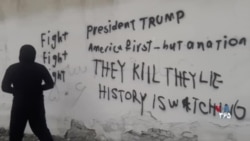 Fight
Fight
Fight
President TRUMP
America first-but a nation
THEY KILL THEY LIE
HISTORY IS WATCHING